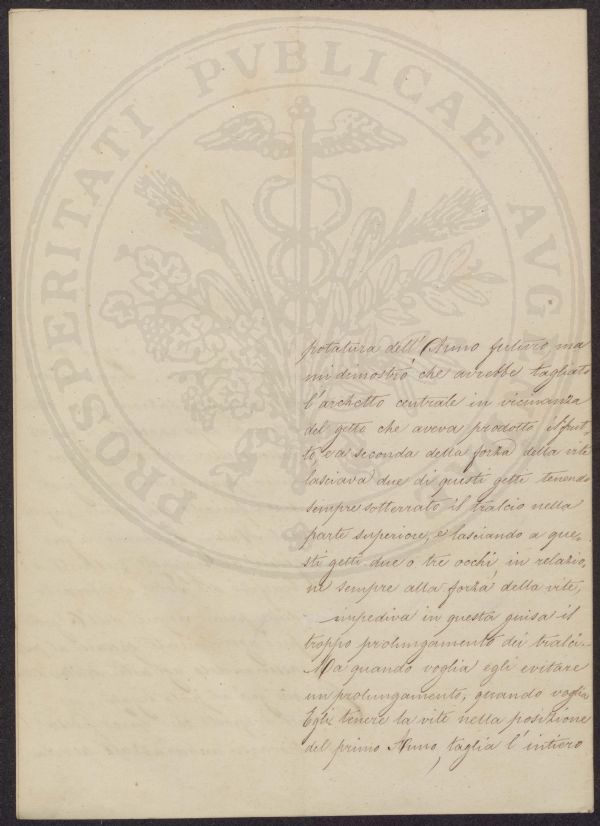 PROSPERITATI PVBLICAE AVGENDAE
potatura dell'Anno futuro, ma
mi dimostrò che avrebbe tagliato
l'archetto centrale in vicinanza
del getto che aveva prodotto il frut-
to, e a seconda della forza della vite
lasciava due di questi getti tenendo
sempre sotterrato il tralcio nella
parte superiore, e lasciando a que-
sti getti due o tre occhi in relazio,
ne sempre alla forza della vite,
impediva in questa guisa il
troppo prolungamento dei tralci.-
Ma quando voglia egli evitare
un prolungamento, quando voglia
Egli tenere la vite nella posizione
del primo Anno, taglia l'intiero